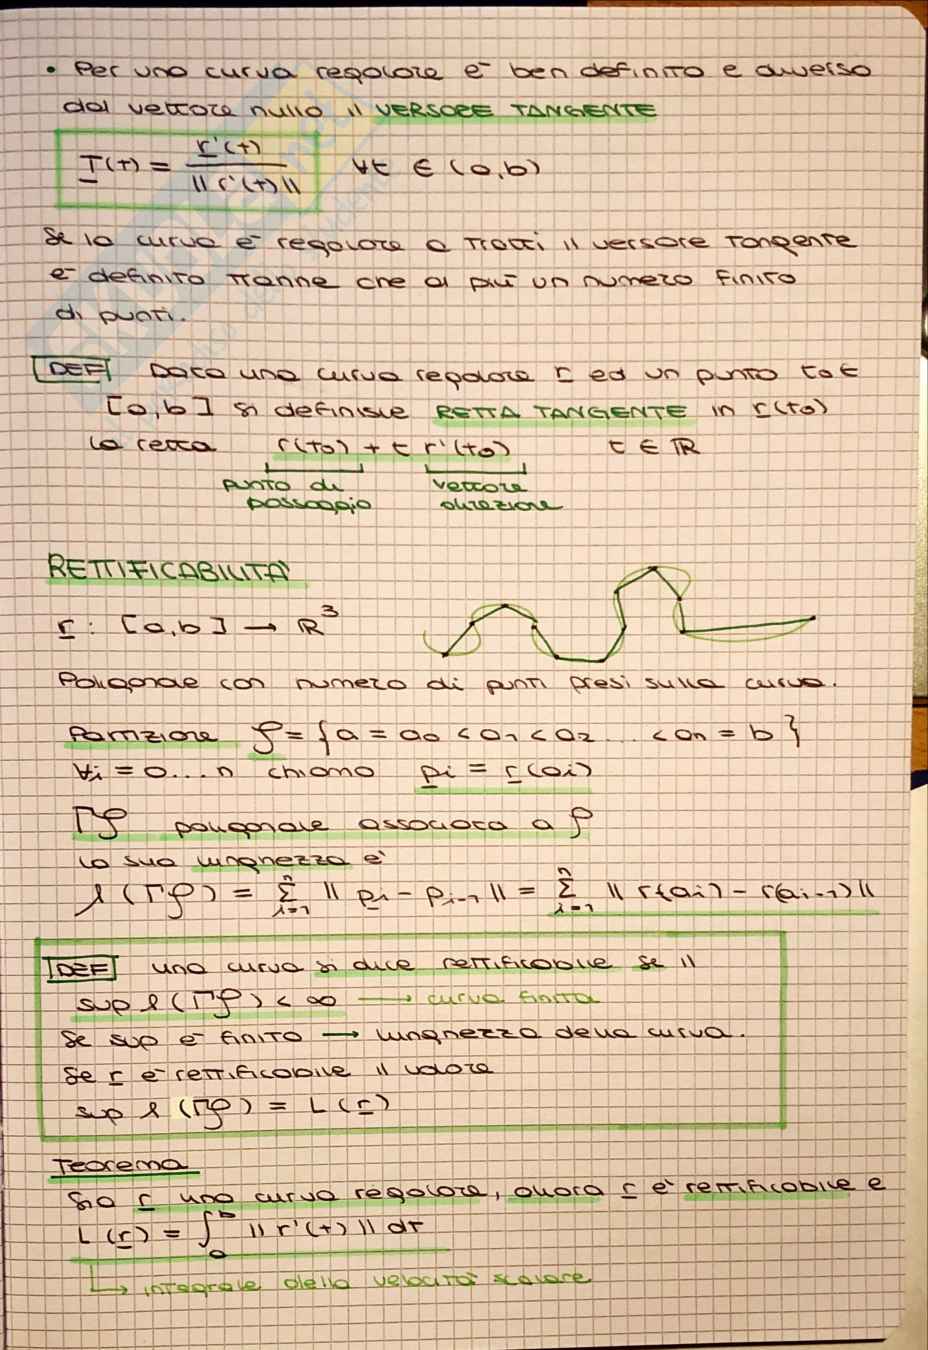 • Per una curva regolare è ben definito e diverso
dal vettore nullo il VERSORE TANGENTE
T(t) = r'(t) / ||r'(t)|| ∀t ∈ (a,b)
Se la curva è regolare a tratti il versore tangente
è definito tranne che al più un numero finito
di punti.
DEF Data una curva regolare r ed un punto t0 ∈
[a,b] si definisce RETTA TANGENTE in r(t0)
la retta r(t0) + t r'(t0) t ∈ ℝ
punto di passaggio
vettore direzione
RETTIFICABILITÀ
r : [a,b] → ℝ³
Poligonale con numero di punti presi sulla curva.
Partizione 𝒫 = {a = a0 < a1 < a2 ... < an = b}
∀i = 0...n chiamo pi = r(ai)
Γ𝒫 poligonale associata a 𝒫
la sua lunghezza è
l(Γ𝒫) = Σ_{i=1}^{n} ||pi - pi-1|| = Σ_{i=1}^{n} ||r(ai) - r(ai-1)||
DEF una curva si dice rettificabile se il
sup l(Γ𝒫) < ∞ → curva finita
Se sup è finito → lunghezza della curva.
Se r è rettificabile il valore
sup l(Γ𝒫) = L(r)
Teorema
Sia r una curva regolare, allora r è rettificabile e
L(r) = ∫_a^b ||r'(t)|| dt
↳ integrale della velocità scalare